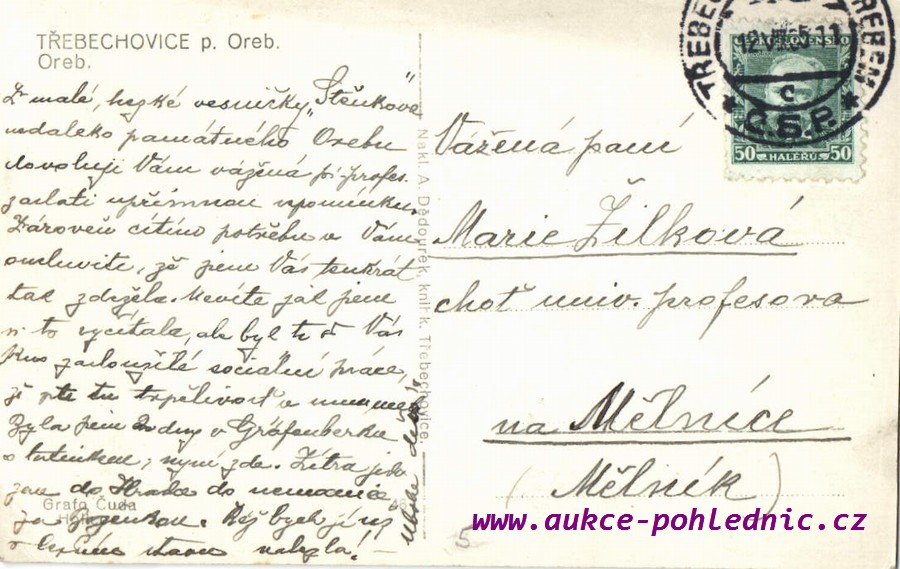 TŘEBECHOVICE p. Oreb.
Oreb.
Z malé, hezké vesničky „Stěnkova"
nedaleko památného Orebu
dovoluji Vám vážená pí. profes.
zaslati upřímnou vzpomínku.
Zároveň cítím potřebu Vám
omluviti, že jsem Vás tenkrát
tak zdržela. Nevíte jak jsem
si to vyčítala, ale byl to Vás
kus záslužné sociální práce,
že jste tu trpělivost
Byla jsem dny v Gräfenberku
s tatínkem, nyní zde. Zítra jedu
do Hradce do nemocnice
za Kéž bych již
v stavu nalezla!
Grafo Čuda
Holice
Nakl. A. Dědourek, knihk. Třebechovice.
TŘEBECHOV OREBEM
12.VIII.35.11
c
Č.S.P.
ČESKOSLOVENSKO
50 HALÉŘŮ 50
Vážená paní
Marie Žilková
choť univ. profesora
na Mělníce
(Mělník)
5
www.aukce-pohlednic.cz